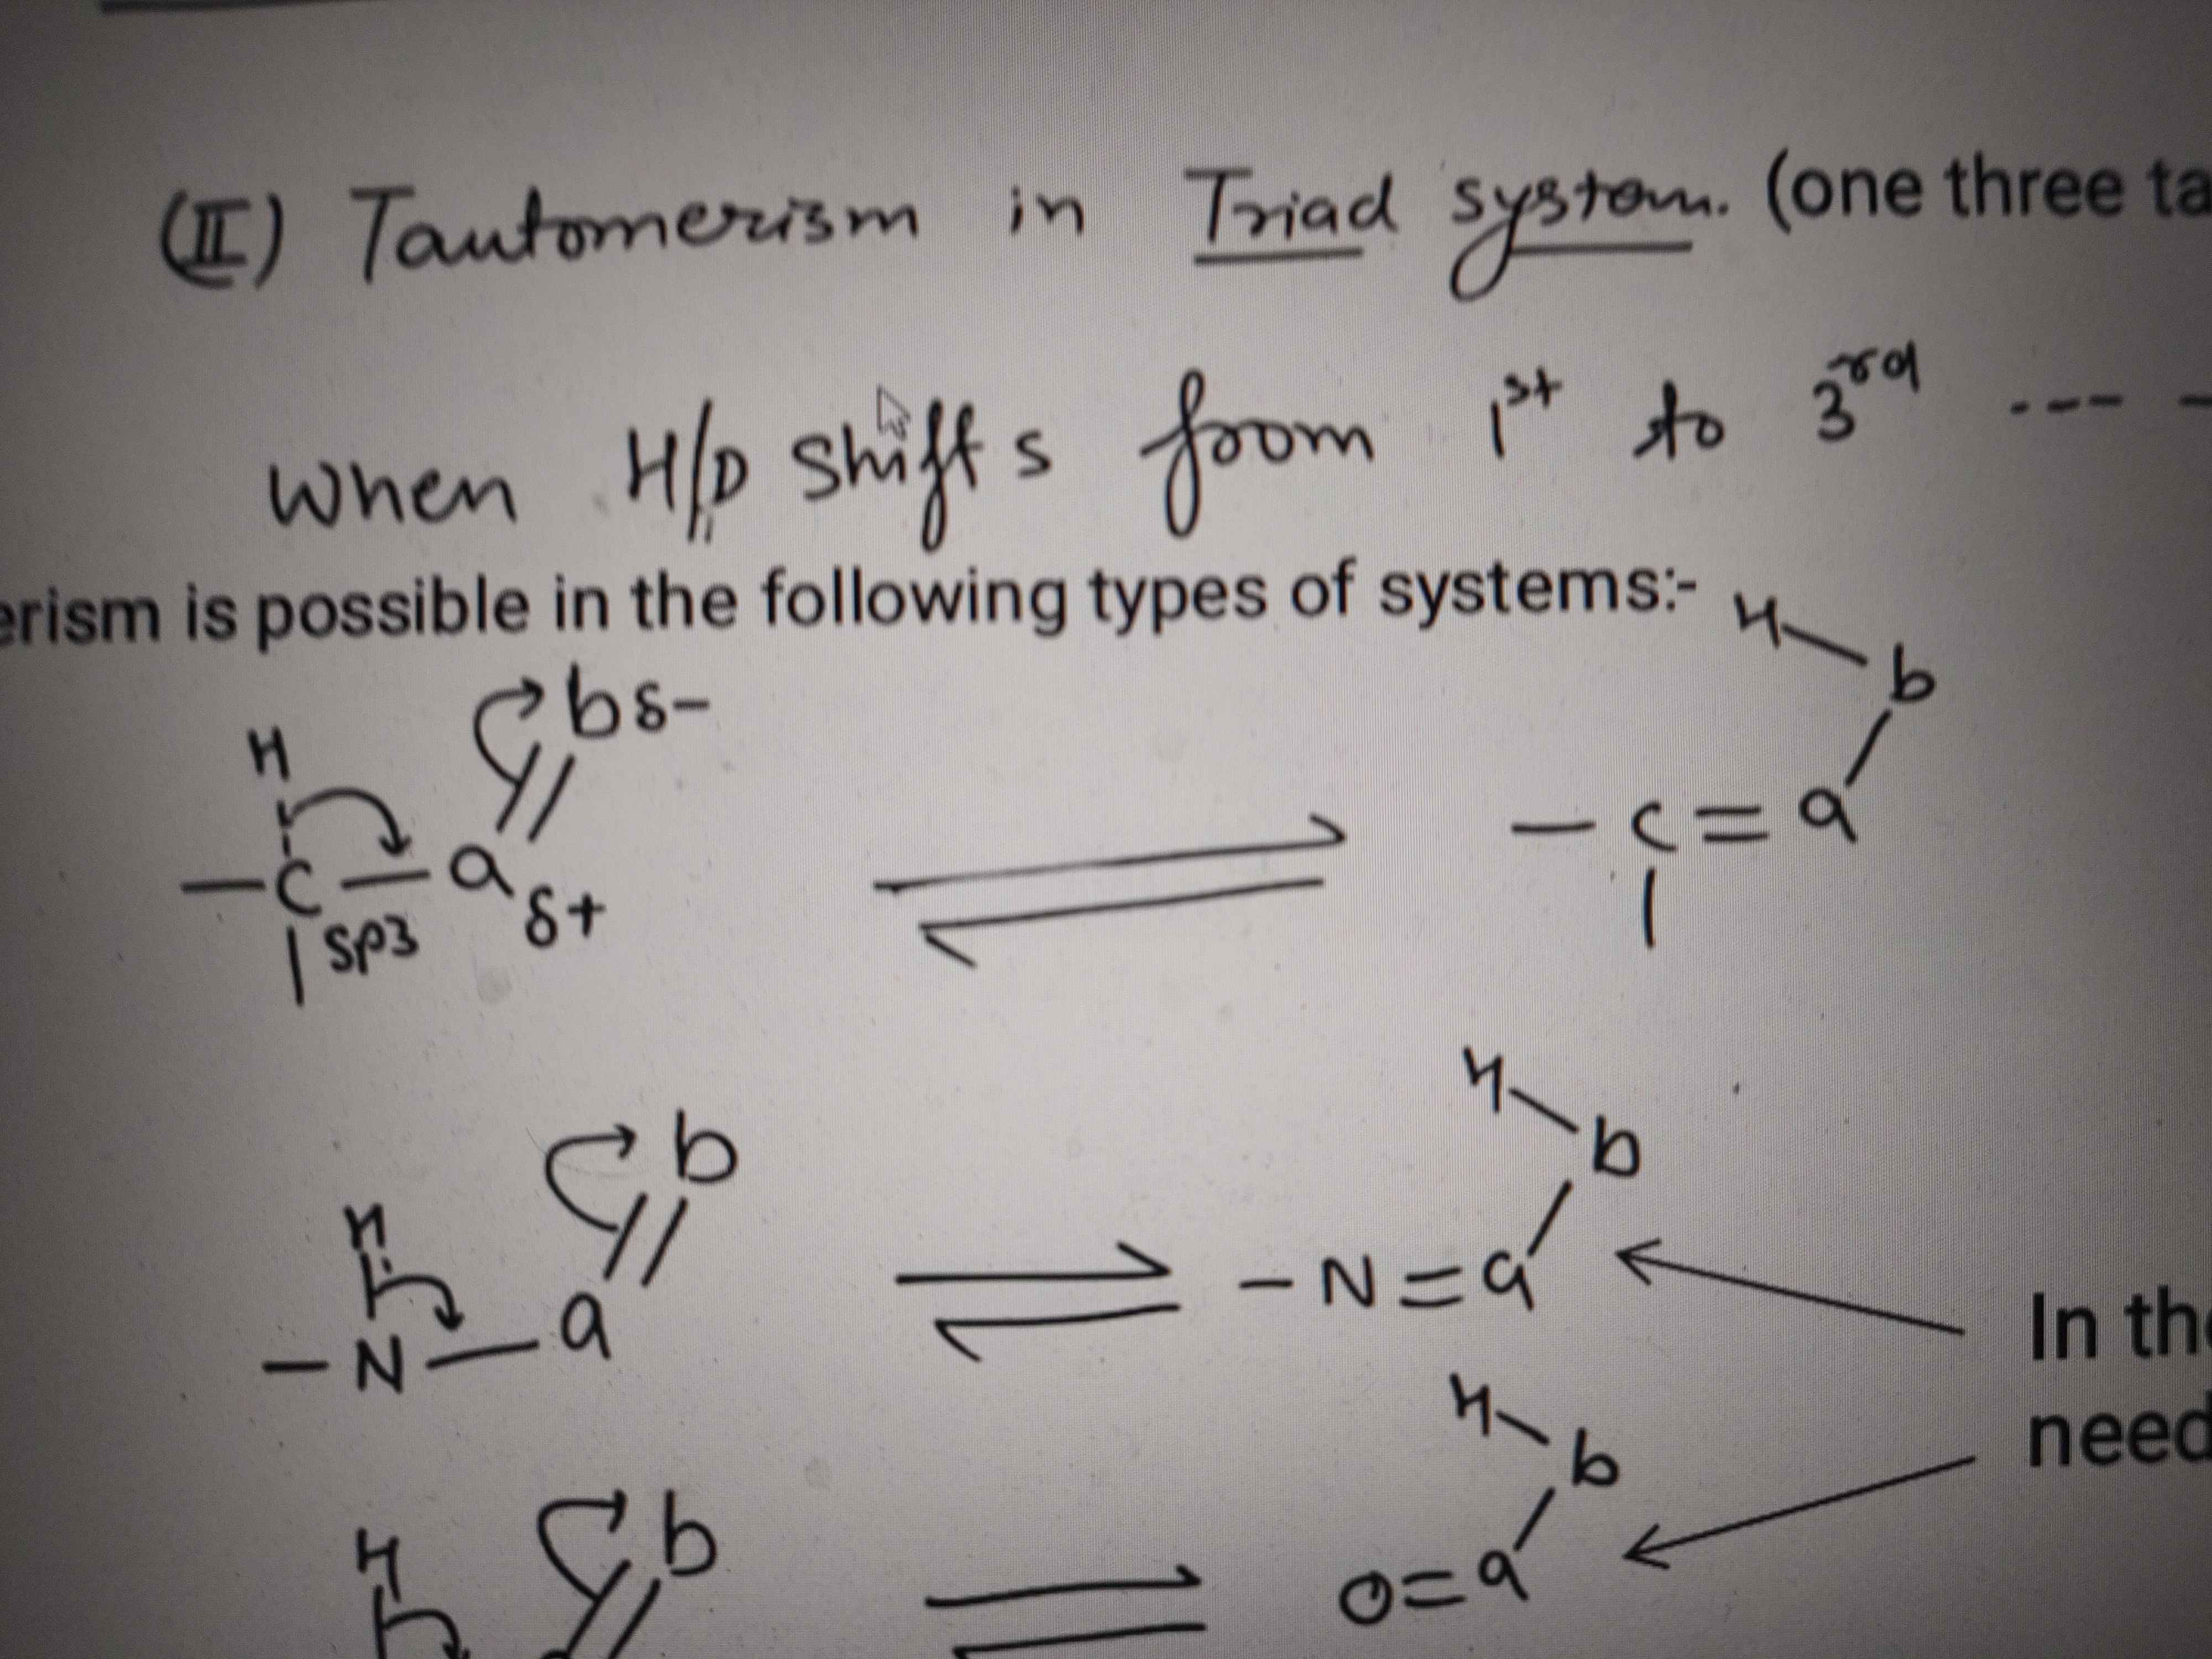 (II) Tautomerism in Triad system. (one three ta
When H/D shifts from 1st to 3rd ---- -
erism is possible in the following types of systems:-
H b δ- H b
- C - a δ+ ⇌ - C = a
sp3
H b H b
- N - a ⇌ - N = a
In the
need
H b H b
⇌ O = a